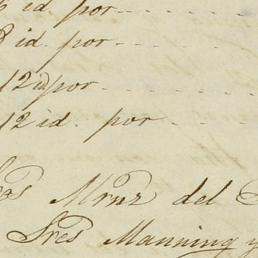 id. por
8 id. por
12 id por
12 id. por
Mrnz del
Sres Manning y